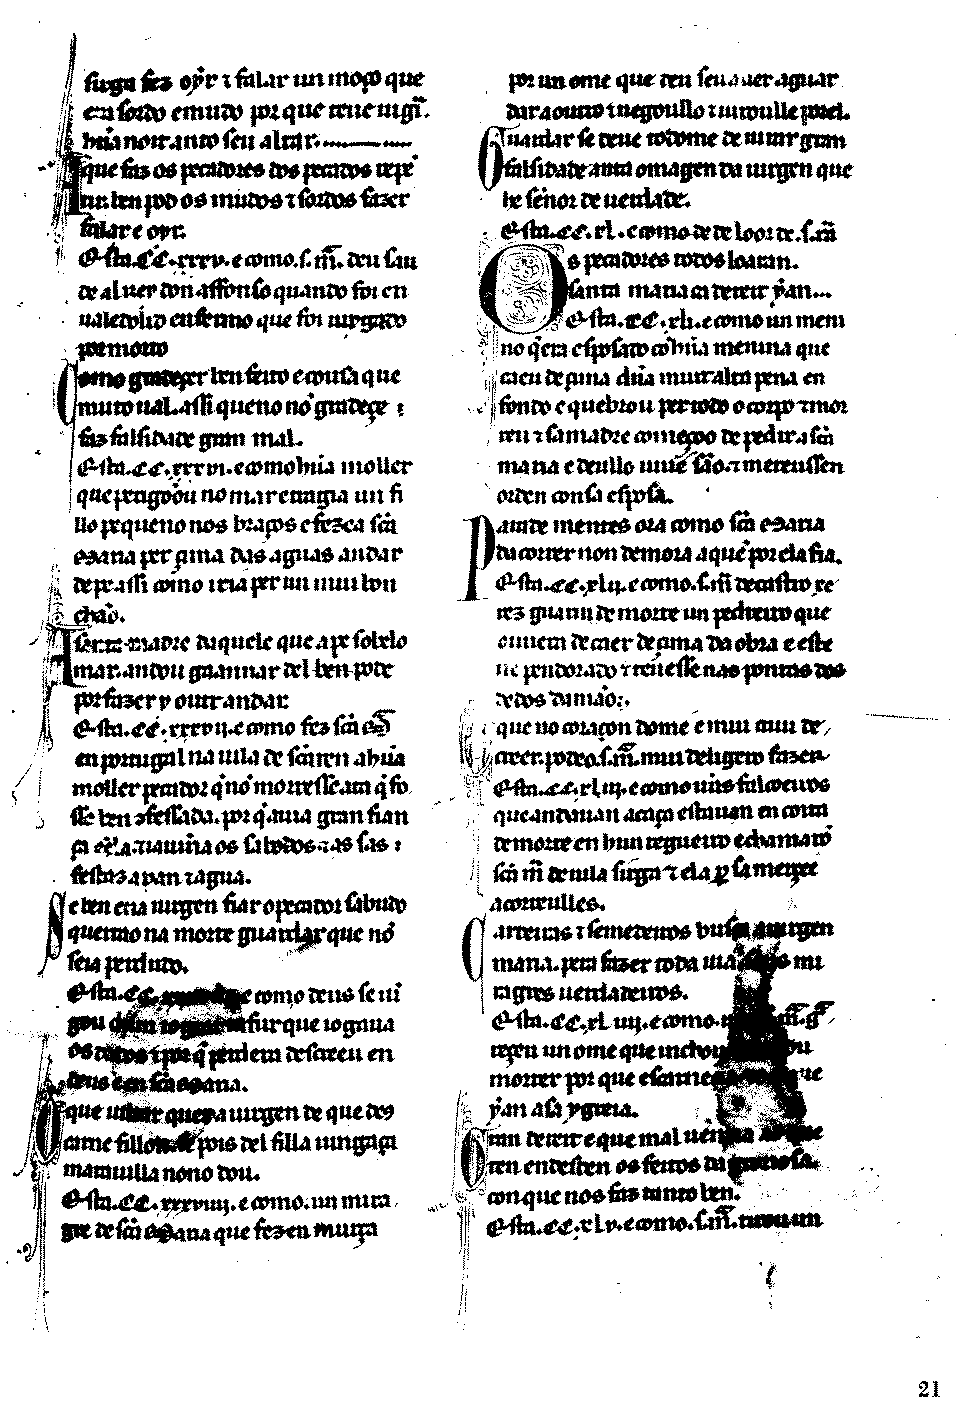 surga fez oyr ⁊ falar un moço que
era sordo e mudo por que teue uigia
hũa noit ante seu altar.
A que faz os pecadores dos pecados repẽ
tir. ben pod os mudos ⁊ sordos fazer
falar e oyr.
Esta .CC.xxxv. e como .s.m̃. deu sau
de al rey don affonso quando foi en
ualedolide enfermo que foi iurgado
por morto
Como gradeçer ben feito e cousa que
muito ual. assi queno nõ gradeçe
faz falsidade gran mal.
Esta .CC.xxxvi. e como hũa moller
que perigoou no mar e tragia un fi
llo pequeno nos braços e feze a scã
maria per çima das aguas andar
de pe assi como iria per un mui bon
chão.
A sennor madre daquele que a pe sobelo
mar. andou guannar del ben pode
por fazer y outr andar.
Esta .CC.xxxvij. e como fez scã m̃
en portugal na uila de scã ren a hũa
moller pecador q̇ nõ morresse ata q̇ fo
sse ben ꝯfessada. por q̇ auia gran fian
ça en ela. ⁊ iaiũaua os sabados. ⁊ as sas
festas a pan ⁊ agua.
Se ben ena uirgen fiar o pecador sabudo
querrao na morte guardar que nõ
seia perdudo.
Esta .CC. e como deus se uĩ
gou dun iograr tafur que iogaua
os dados ⁊ por q̇ perdera descreeu en
deus e en scã maria.
O que uiltar quer a uirgen de que deus
carne fillou se pois del filla uingança
marauilla nono dou.
Esta .CC.xxxviiij. e como. un mira
gre de scã maria que fez en murça
por un ome que deu seu auer a guar
dar a outro ⁊ negoullo ⁊ iuroulle por el.
Guardar se deue tod ome de iurar gran
falsidade ant a omagen da uirgen que
he sẽnor de uerdade.
Esta .CC.xl. e como de de loor de .s.m̃
Os pecadores todos loaran.
santa maria ca dereit y an
Esta .CC.xli. e como un meni
no q̇ era esposado cõ hũa menina que
caeu de çima dũa muit alta pena en
fondo e quebrou per todo o corpo ⁊ mor
reu ⁊ sa madre começou de pedir a scã
maria e deullo uiuẽ são. ⁊ meteussen
orden con sa esposa.
Parade mentes ora como scã maria
da correr non demora a que por ela fia.
Esta .CC.xlij. e como .s.m̃ de castro xe
rez guariu de morte un pedreiro que
ouuera de caer de çima da obra e este
ue pendorado ⁊ teuesse nas pontas dos
dedos da mão.
O que no coraçon dome e mui cruu de
creer. pode o .s.m̃. mui de ligero fazer.
Esta .CC.xliij. e como ũus falcoeiros
que andauan a caça estauan en coita
de morte en hun regueiro e chamarõ
scã m̃ de uila sirga ⁊ ela ꝑ sa merçee
acorreulles.
Carreiras ⁊ semedeiros busca a uirgen
maria. pera fazer toda uia mi
ragres uerdadeiros.
Esta .CC.xliiij. e como
un ome que inchou
morrer por que escarneçe que
y an a sa ygreia.
Gran dereit e que mal uenna ao que
ten en desden os feitos da groriosa.
con que nos faz tanto ben.
Esta .CC.xlv. e como .s.m̃. tirou un
21